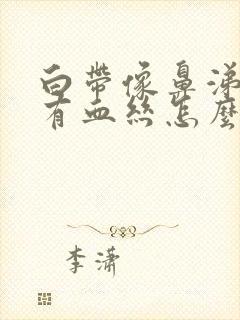 白帶像鼻涕
有血絲怎麼
李瀟